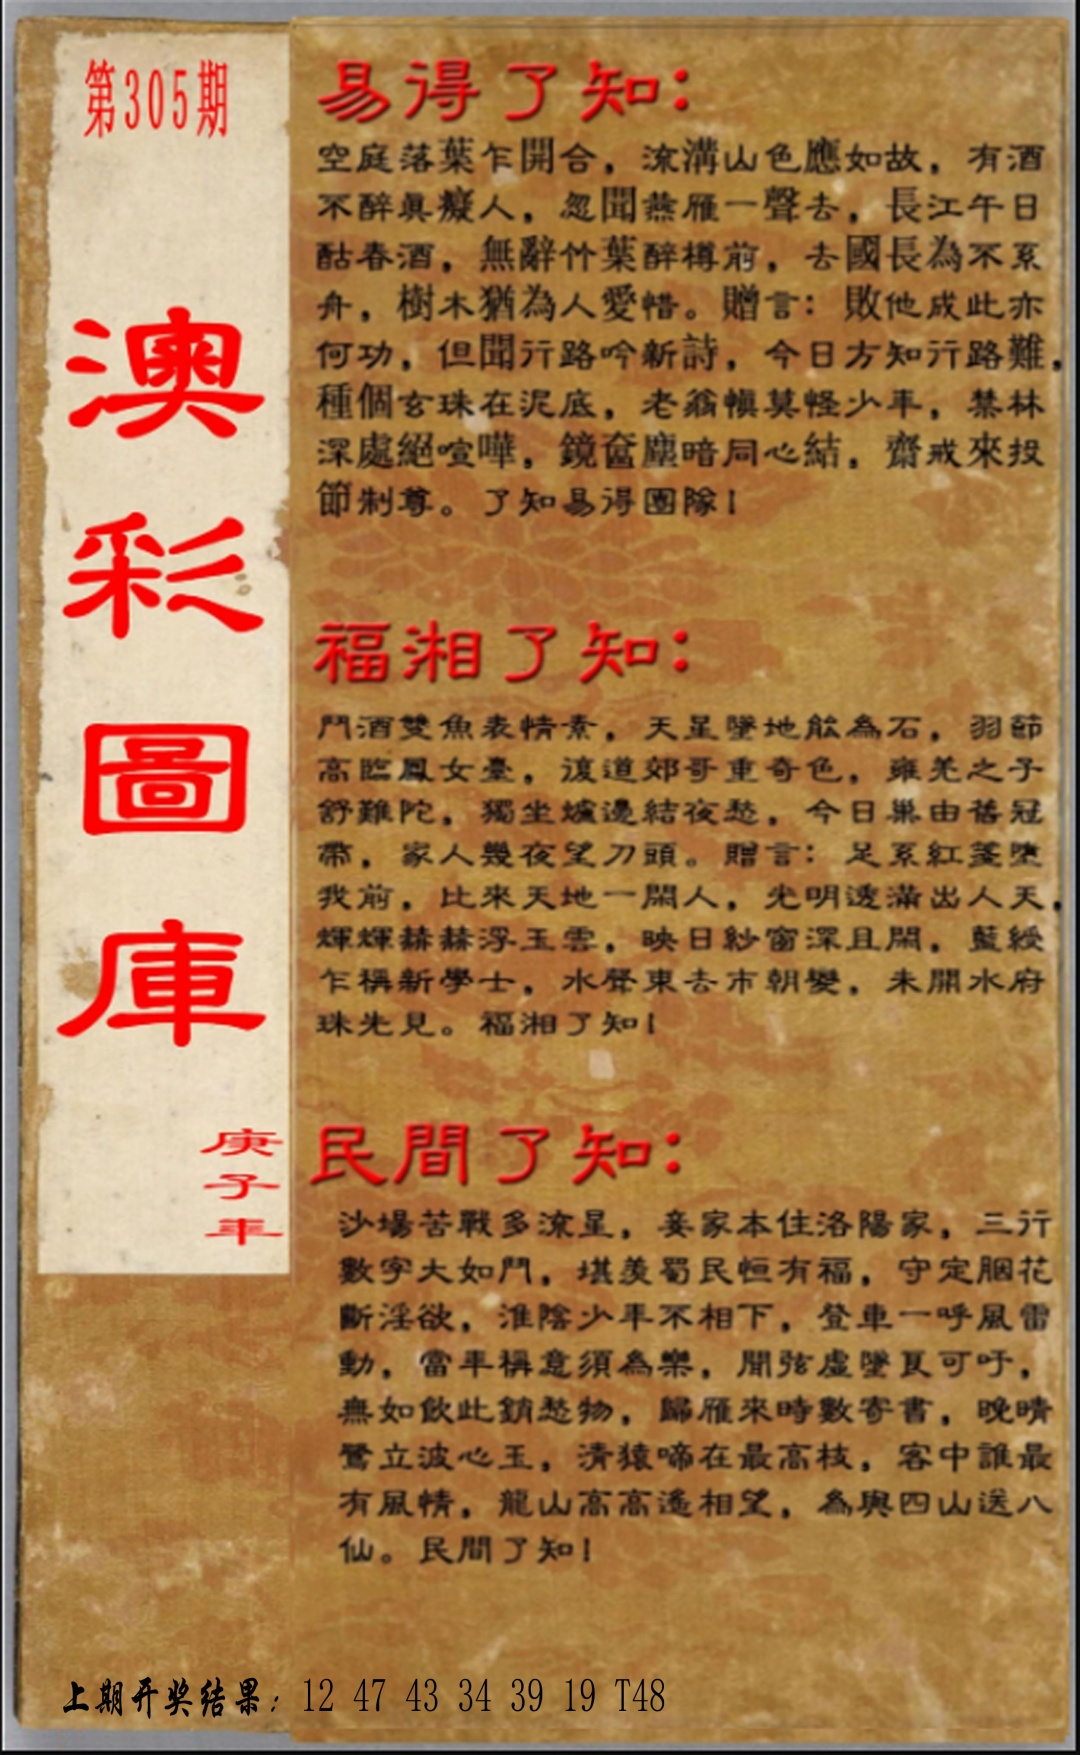 第305期
澳彩圖庫
庚子年
易得了知：
空庭落葉乍開合，流溝山色應如故，有酒
不醉眞癡人，忽聞燕雁一聲去，長江午日
酤春酒，無辭竹葉醉樽前，去國長為不系
舟，樹木猶為人愛惜。贈言：敗他成此亦
何功，但聞行路吟新詩，今日方知行路難，
種個玄珠在泥底，老翁慎莫怪少年，禁林
深處絕喧嘩，鏡奩塵暗同心結，齋戒來投
節制尊。了知易得團隊！
福湘了知：
鬥酒雙魚表情素，天星墜地能為石，羽節
高臨鳳女臺，復道郊哥重奇色，雍羌之子
舒難陀，獨坐爐邊結夜愁，今日巢由舊冠
帶，家人幾夜望刀頭。贈言：足系紅箋墮
我前，比來天地一閑人，光明透滿出人天，
輝輝赫赫浮玉雲，映日紗窗深且閑，藍綬
乍稱新學士，水聲東去市朝變，未開水府
珠先見。福湘了知！
民間了知：
沙場苦戰多流星，妾家本住洛陽家，三行
數字大如鬥，堪羨蜀民恒有福，守定胭花
斷淫欲，淮陰少年不相下，登車一呼風雷
動，當年稱意須為樂，聞弦虛墜良可吁，
無如飲此銷愁物，歸雁來時數寄書，晚晴
鷺立波心玉，清猿啼在最高枝，客中誰最
有風情，龍山高高遙相望，為與四山送八
仙。民間了知！
上期开奖结果：12 47 43 34 39 19 T48